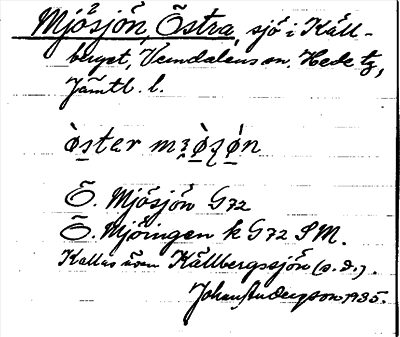 Mjösjön, Östra, sjö i Käll-
berget, Vemdalens sn. Hede tg,
Jämtl. l.
öster
Ö. Mjösjön G72
Ö. Mjöingen k G72 SM.
Kallas även Källbergssjön (s.d.).
Johan Anderson 1935.